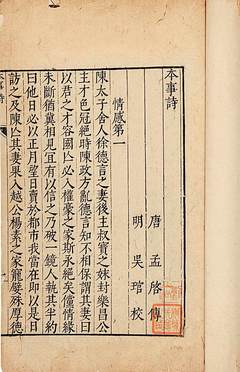 本事詩
唐 孟啓 傳
明 吳琯 校
情感第一
陳太子舍人徐德言之妻後主叔寶之妹封樂昌公
主才色冠絕時陳政方亂德言知不相保謂其妻曰
以君之才容國亾必入權豪之家斯永絕矣儻情緣
未斷猶冀相見宜有以信之乃破一鏡人執其半約
曰他日必以正月望日賣於都市我當在即以是日
訪之及陳亾其妻果入越公楊素之家寵嬖殊厚德